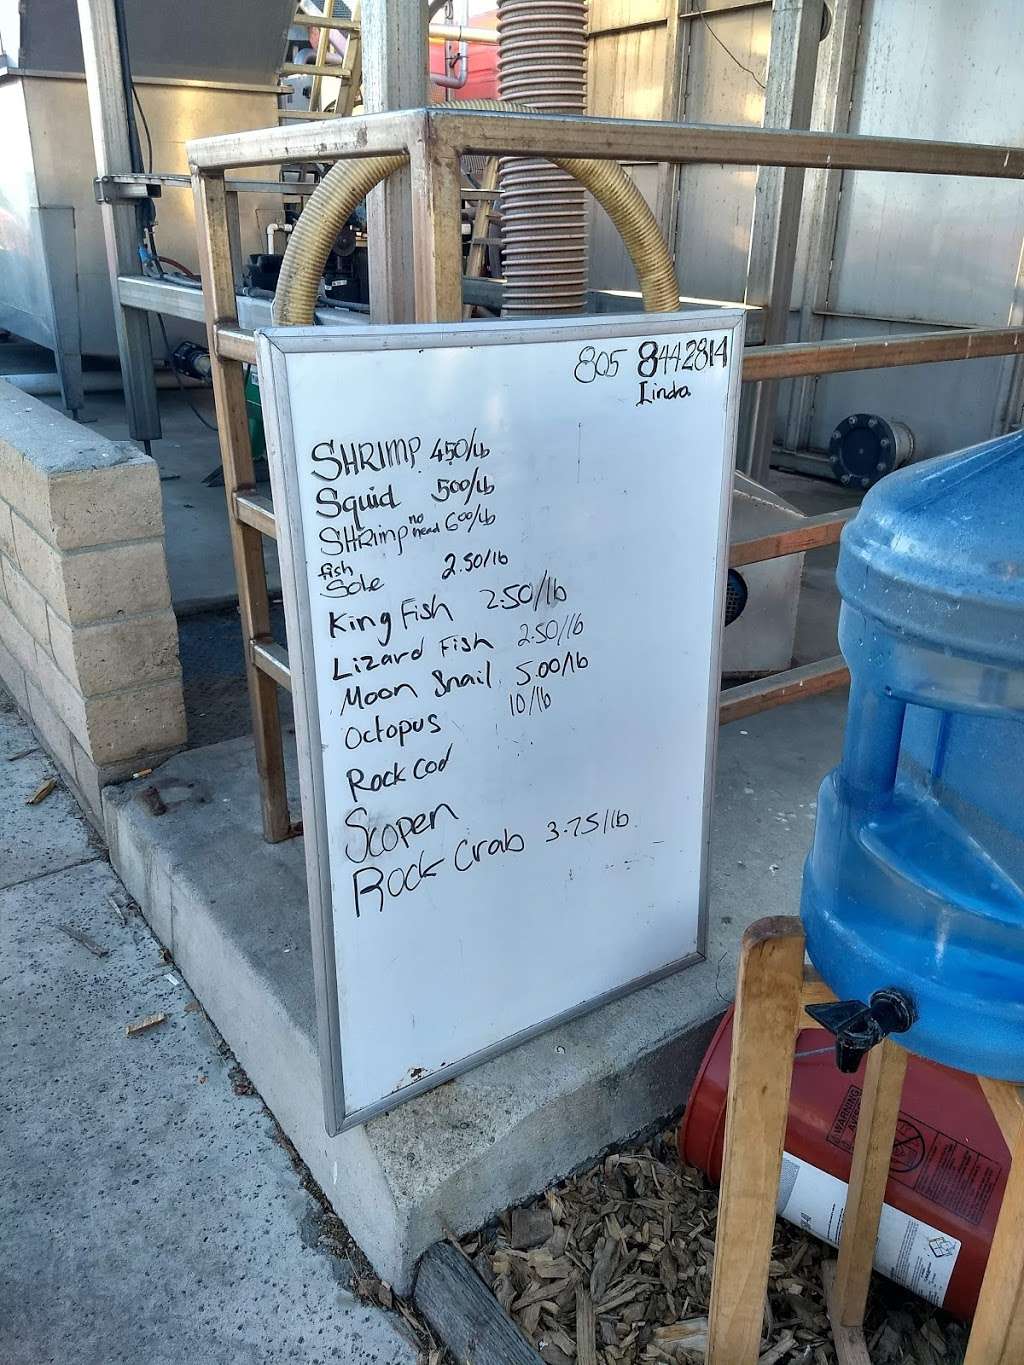 805 8442814
Linda
SHRIMP 450/lb
Squid 500/lb
SHRIMP no head 600/lb
fish
Sole 2.50/lb
King Fish 2.50/lb
Lizard Fish 2.50/lb
Moon Snail 5.00/lb
Octopus 10/lb
Rock Cod
Scopen
Rock Crab 3.75/lb
WARNING